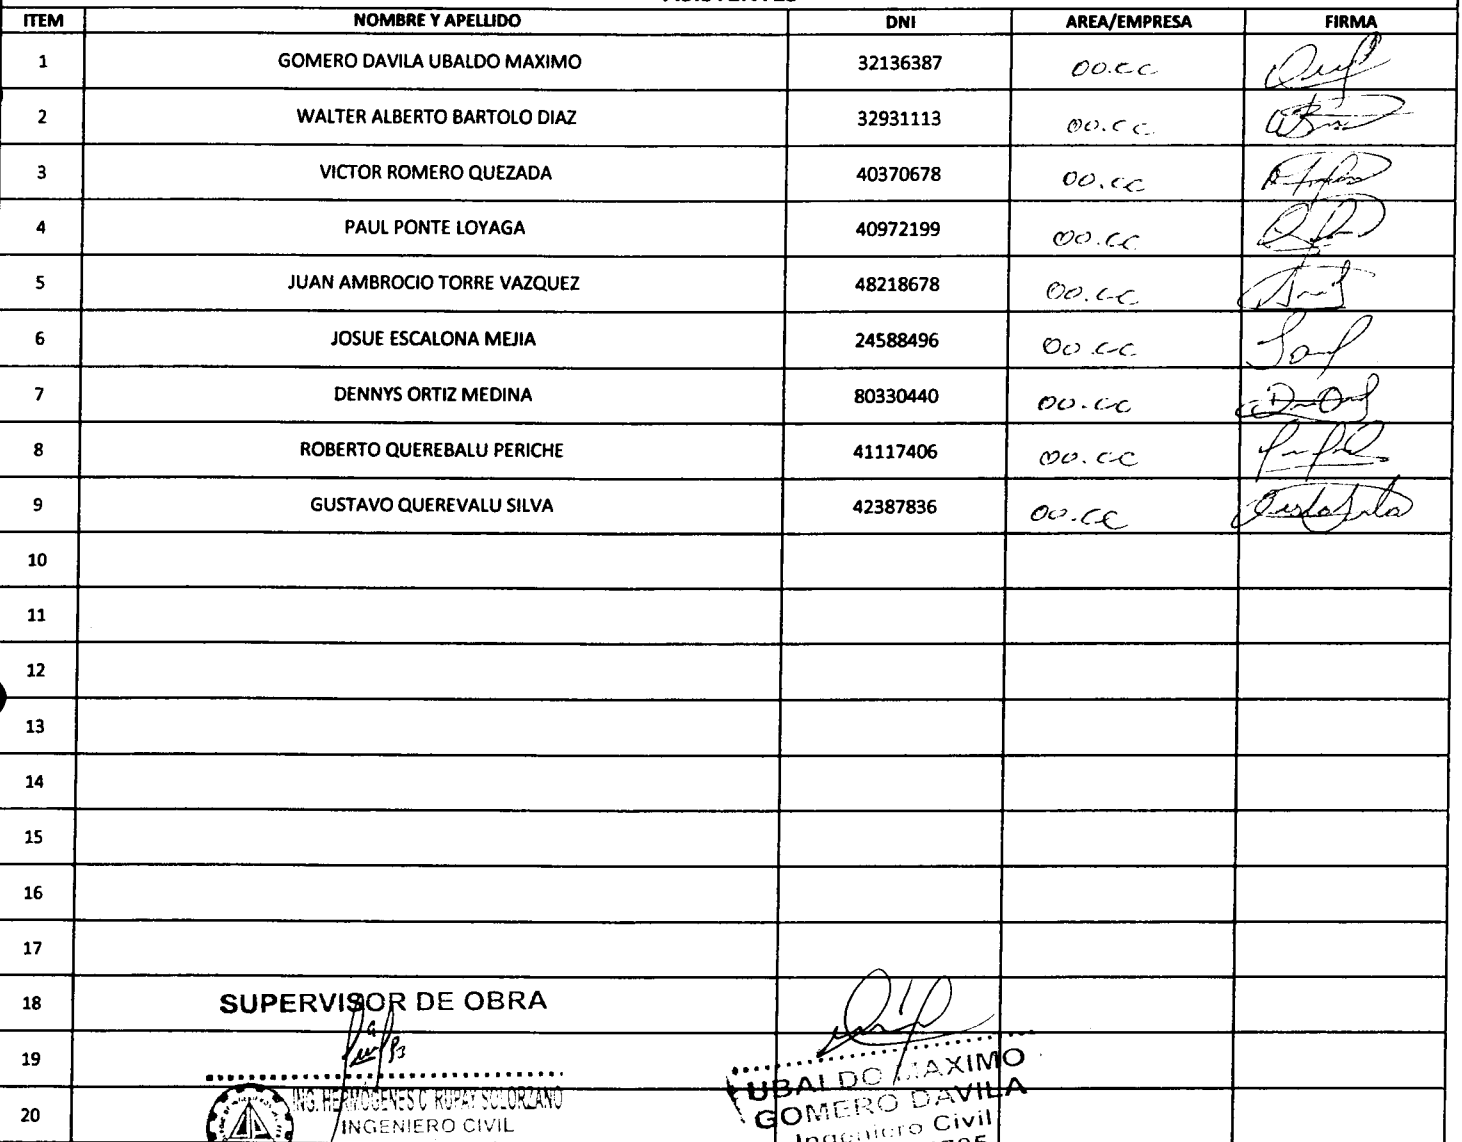 ASISTENTES
ITEM NOMBRE Y APELLIDO DNI AREA/EMPRESA FIRMA
1 GOMERO DAVILA UBALDO MAXIMO 32136387 OO.CC
2 WALTER ALBERTO BARTOLO DIAZ 32931113 OO.CC
3 VICTOR ROMERO QUEZADA 40370678 OO.CC
4 PAUL PONTE LOYAGA 40972199 OO.CC
5 JUAN AMBROCIO TORRE VAZQUEZ 48218678 OO.CC
6 JOSUE ESCALONA MEJIA 24588496 OO.CC
7 DENNYS ORTIZ MEDINA 80330440 OO.CC
8 ROBERTO QUEREBALU PERICHE 41117406 OO.CC
9 GUSTAVO QUEREVALU SILVA 42387836 OO.CC
10
11
12
13
14
15
16
17
18 SUPERVISOR DE OBRA
19 UBALDO MAXIMO
ING. HERMOGENES C. RUPAY SOLORZANO GOMERO DAVILA
20 INGENIERO CIVIL Ingeniero Civil